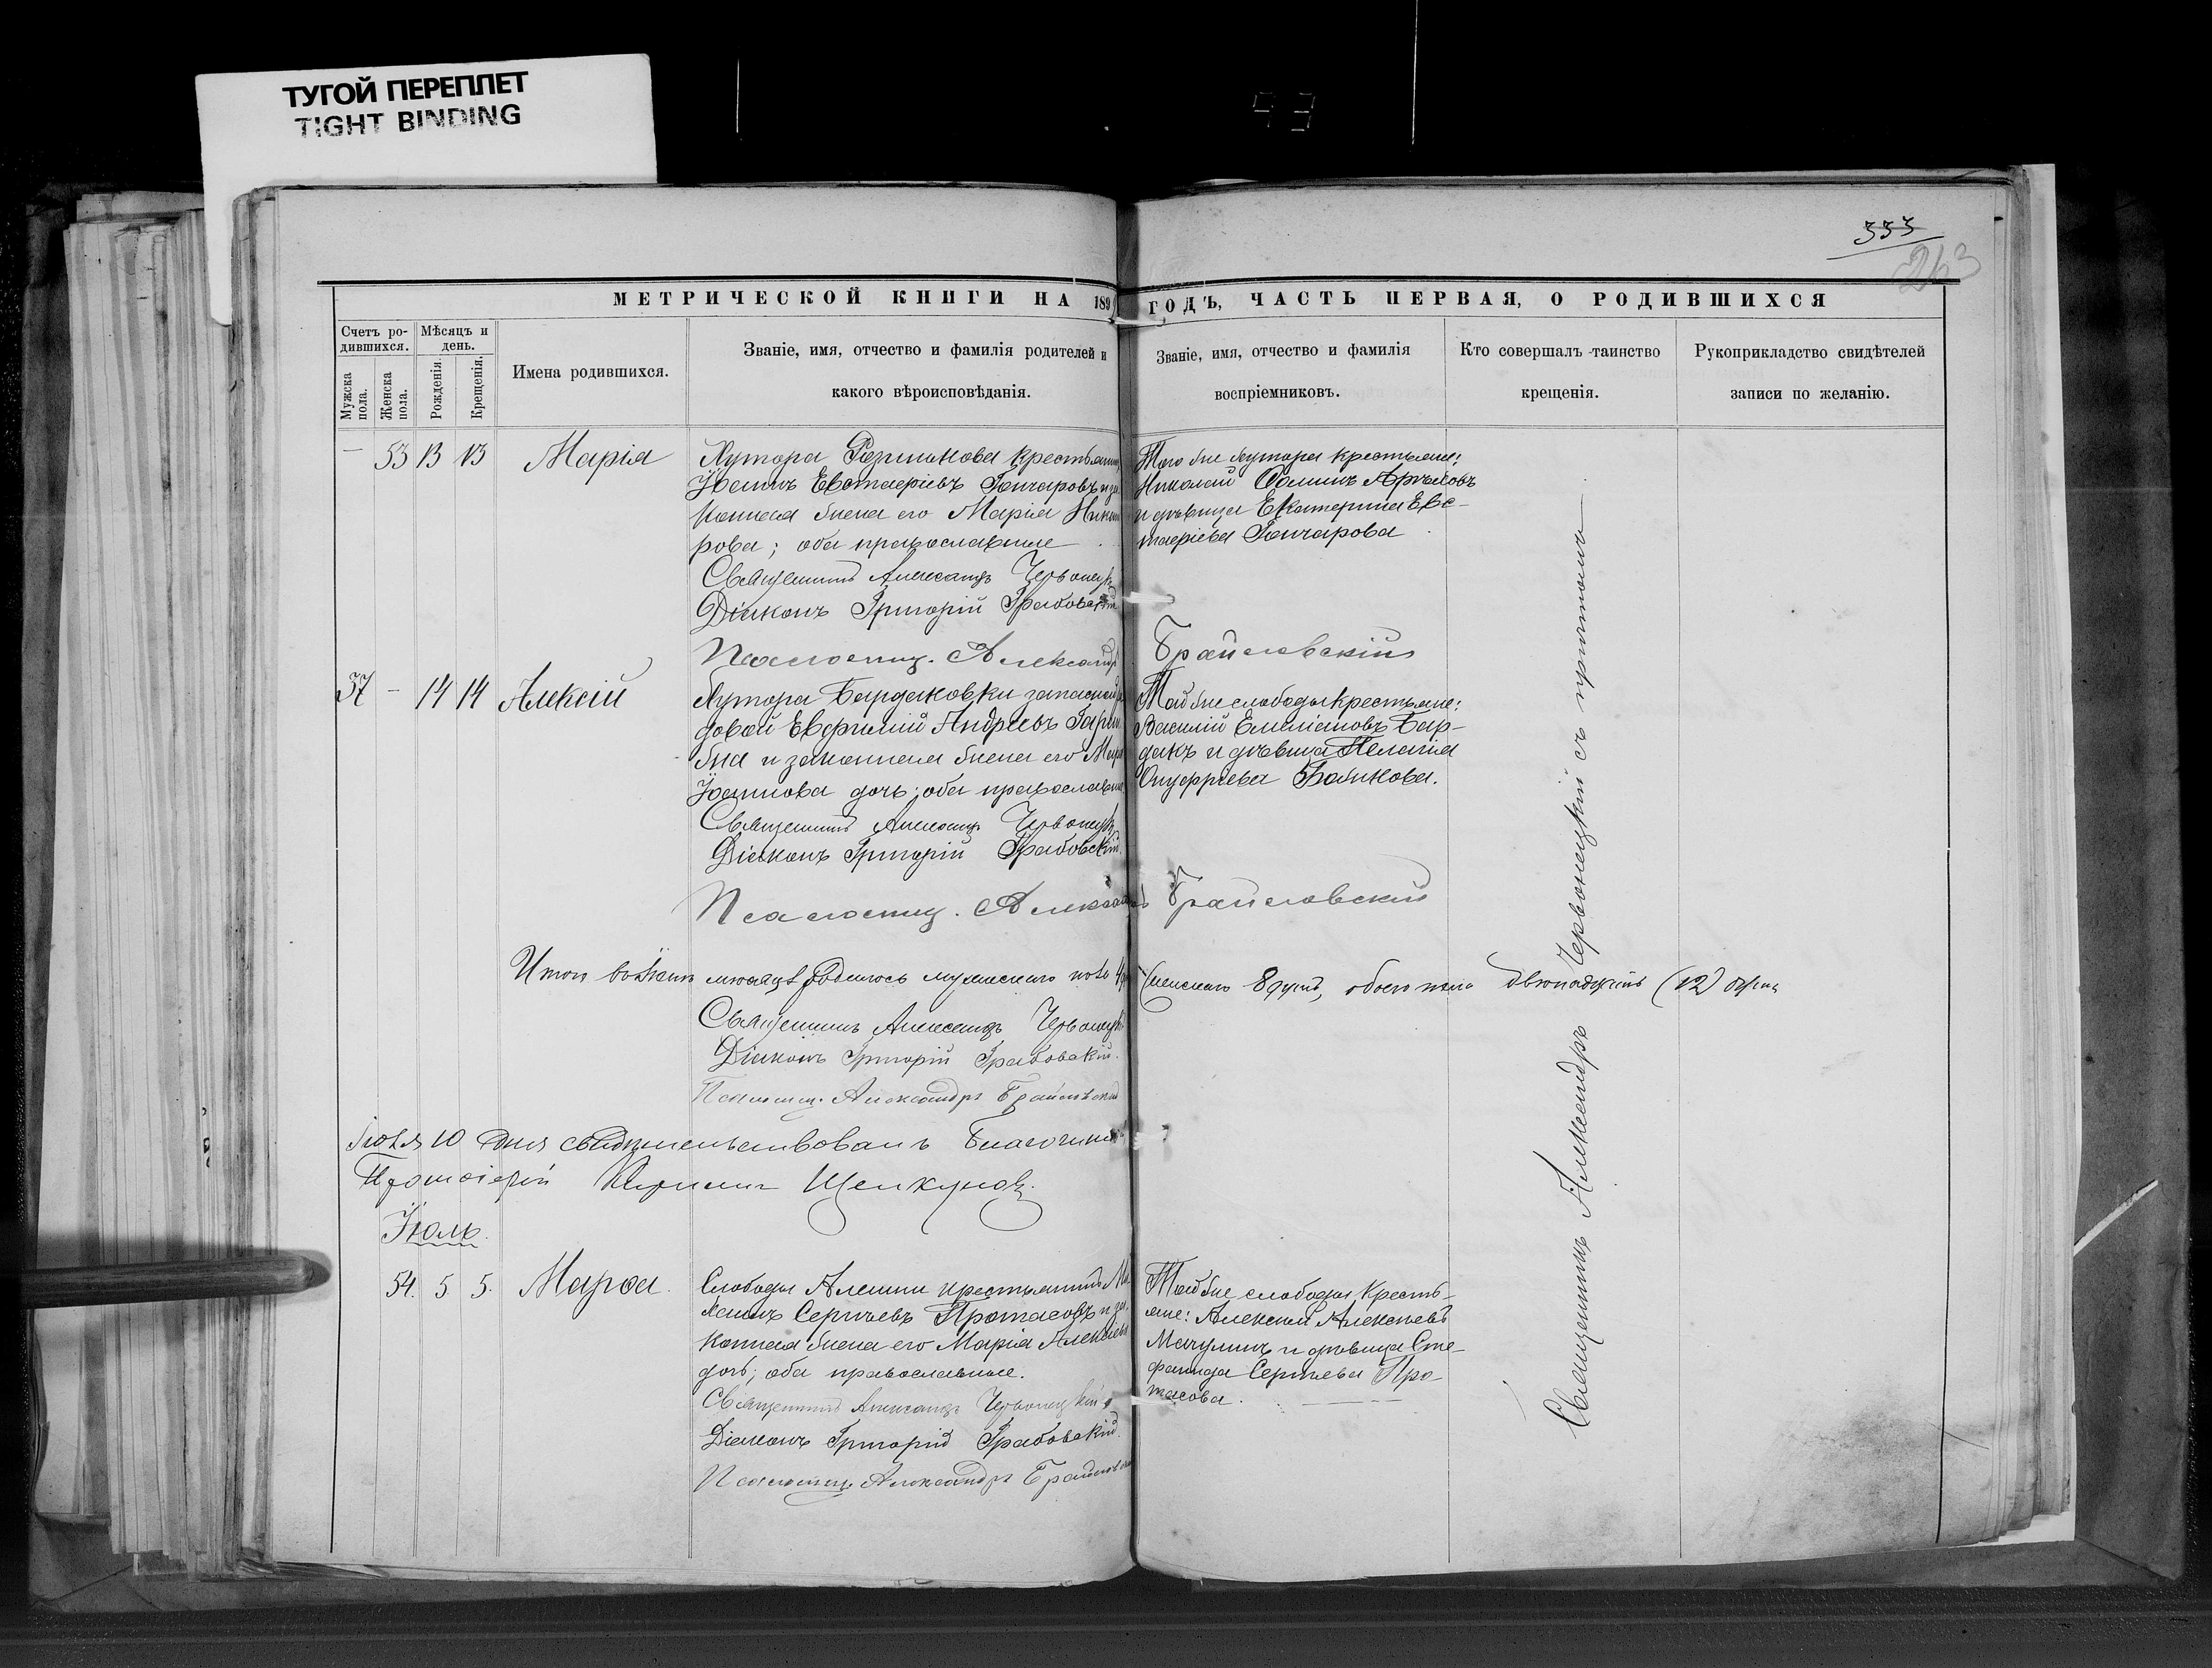 ТУГОЙ ПЕРЕПЛЕТ
TIGHT BINDING
333
263
МЕТРИЧЕСКОЙ КНИГИ НА 189 ГОДЪ, ЧАСТЬ ПЕРВАЯ, О РОДИВШИХСЯ
Счетъ ро-
дившихся.
Мѣсяцъ и
день.
Мужска
пола.
Женска
пола.
Рожденія.
Крещенія.
Имена родившихся.
Званіе, имя, отчество и фамилія родителей и
какого вѣроисповѣданія.
Званіе, имя, отчество и фамилія
воспріемниковъ.
Кто совершалъ таинство
крещенія.
Рукоприкладство свидѣтелей
записи по желанію.
— 53 13 13 Марія
Хутора крестьянин
Евстаѳіевъ Гончаровъ и за
конная жена его Марія
рова; оба православные
Священникъ Александръ Червонецк
Діаконъ Григорій Грабовскій
Псаломщ. Александр Брайловскій
Того же хутора крестьяне:
Николай
и дѣвица Екатерина Евс-
таѳіева Гончарова
37 — 14 14 Алексій
Хутора Бардаковки запасной
довой Евфимій Андреевъ
бна и законная жена его
дочь; оба православн
Священникъ Александръ Червонецк
Діаконъ Григорій Грабовскій.
Псаломщ. Александръ Брайловскій
Той же слободы крестьяне:
Василій Емиліановъ Бар-
дакъ и дѣвица Пелагія
Онуфріева
Итого въ Іюнѣ мѣсяцѣ родилось мужескаго пола 4 женскаго 8 душъ, обоего пола двѣнадцать (12) душъ
Священникъ Александръ Червонецкі
Діаконъ Григорій Грабовскій.
Псаломщ. Александръ Брайловскій
Іюля 10 дня свидѣтельствовалъ Благочинн
Протоіерей Кириллъ
Іюль.
54. 5 5. Марѳа.
Слободы крестьянинъ
Сергѣевъ Протасовъ и за
конная жена его Марія Алексѣев
дочь; оба православные.
Священникъ Александръ Червонецкій
Діаконъ Григорій Грабовскій.
Псаломщ. Александръ Брайловск
Той же слободы кресть-
яне: Алексій Алексѣевъ
и дѣвица Сте-
фанида Сергѣева Про-
тасова.
Священникъ Александръ Червонецкій съ причтомъ